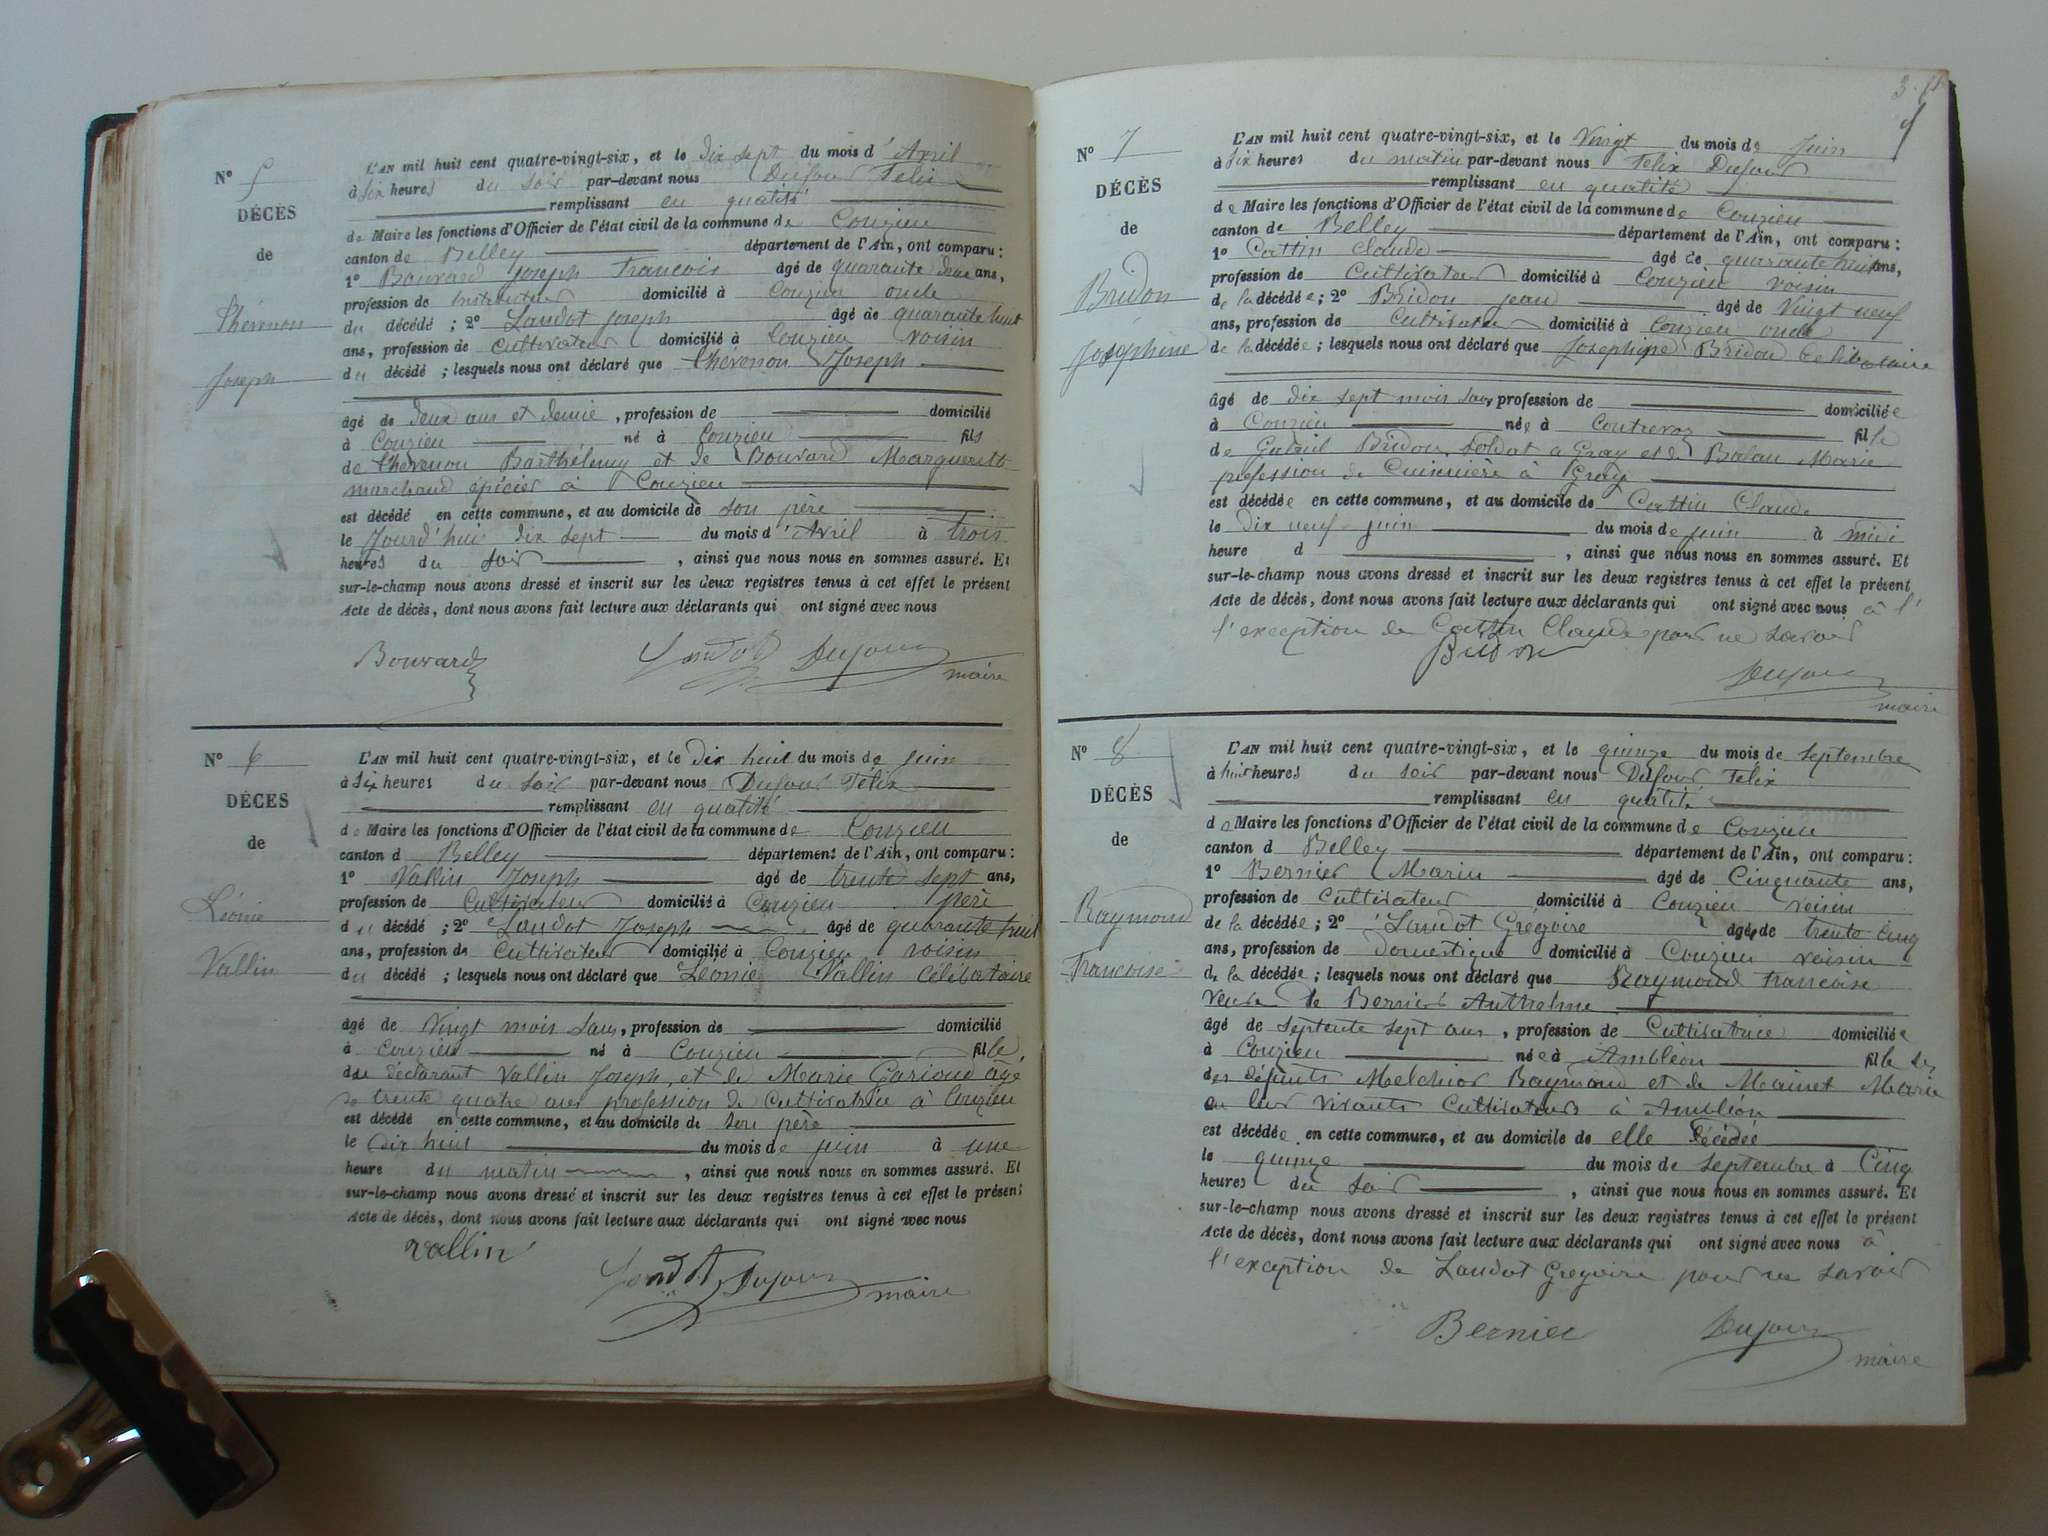 N° 5
DÉCÈS
de
Thévenon
Joseph
L'AN mil huit cent quatre-vingt-six, et le dix sept du mois d'Avril
à six heures du soir par-devant nous Dufour Felix
remplissant en qualité
de Maire les fonctions d'Officier de l'état civil de la commune de Conzieu
canton de Belley département de l'Ain, ont comparu :
1° Bouvard Joseph François âgé de quarante deux ans,
profession de instituteur domicilié à Conzieu oncle
du décédé ; 2° Landot Joseph âgé de quarante huit
ans, profession de cultivateur domicilié à Conzieu voisin
du décédé ; lesquels nous ont déclaré que Thévenon Joseph
âgé de deux ans et demie, profession de domicilié
à Conzieu né à Conzieu fils
de Thévenon Barthélemy et de Bouvard Marguerite
marchand épicier à Conzieu
est décédé en cette commune, et au domicile de son père
le Jourd'hui dix sept du mois d'Avril à trois
heures du soir , ainsi que nous nous en sommes assuré. Et
sur-le-champ nous avons dressé et inscrit sur les deux registres tenus à cet effet le présent
Acte de décès, dont nous avons fait lecture aux déclarants qui ont signé avec nous
Bouvard Landot Dufour
maire
N° 6
DÉCES
de
Léonie
Vallin
L'AN mil huit cent quatre-vingt-six, et le dix huit du mois de juin
à six heures du soir par-devant nous Dufour Félix
remplissant en qualité
de Maire les fonctions d'Officier de l'état civil de la commune de Conzieu
canton d Belley département de l'Ain, ont comparu :
1° Vallin Joseph âgé de trente sept ans,
profession de Cultivateur domicilié à Conzieu père
du décédé ; 2° Landot Joseph âgé de quarante huit
ans, profession de Cultivateur domicilié à Conzieu voisin
du décédé ; lesquels nous ont déclaré que Léonie Vallin célibataire
âgé de Vingt mois sans, profession de domicilié
à Conzieu né à Conzieu fille
du déclarant Vallin Joseph et de Marie Garioud âgé
de trente quatre ans profession de Cultivatrice à Conzieu
est décédé en cette commune, et au domicile de son père
le dix huit du mois de juin à une
heure du matin , ainsi que nous nous en sommes assuré. Et
sur-le-champ nous avons dressé et inscrit sur les deux registres tenus à cet effet le présent
Acte de décès, dont nous avons fait lecture aux déclarants qui ont signé avec nous
Vallin
Landot Dufour
maire
3
N° 7
DÉCÈS
de
Bridon
Joséphine
L'AN mil huit cent quatre-vingt-six, et le Vingt du mois de Juin
à six heures du matin par-devant nous Felix Dufour
remplissant en qualité
de Maire les fonctions d'Officier de l'état civil de la commune de Conzieu
canton de Belley département de l'Ain, ont comparu :
1° Cattin Claude âgé de quarante huit ans,
profession de Cultivateur domicilié à Conzieu voisin
de la décédée ; 2° Bridon jean âgé de Vingt neuf
ans, profession de Cultivateur domicilié à Conzieu oncle
de la décédée ; lesquels nous ont déclaré que Josephine Bridon Celibataire
âgé de dix sept mois sans profession de domiciliée
à Conzieu née à Contrevoz fille
de Gabriel Bridon soldat a Gray et de Balan Marie
profession de Cuisinière à Gray
est décédée en cette commune, et au domicile de Cattin Claude
le dix neuf juin du mois de juin à midi
heure d , ainsi que nous nous en sommes assuré. Et
sur-le-champ nous avons dressé et inscrit sur les deux registres tenus à cet effet le présent
Acte de décès, dont nous avons fait lecture aux déclarants qui ont signé avec nous à l'
l'exception de Cattin Claude pour ne savoir
Bridon
Dufour
maire
N° 8
DÉCÈS
de
Raymond
Francoise
L'AN mil huit cent quatre-vingt-six, et le quinze du mois de septembre
à huit heures du soir par-devant nous Dufour Felix
remplissant en qualité
de Maire les fonctions d'Officier de l'état civil de la commune de Conzieu
canton d Belley département de l'Ain, ont comparu :
1° Bernier Marin âgé de Cinquante ans,
profession de Cultivateur domicilié à Conzieu voisin
de la décédée ; 2° Landot Grégoire âgé de trente cinq
ans, profession de Domestique domicilié à Conzieu voisin
de la décédée ; lesquels nous ont déclaré que Raymond Francoise
Veuve de Bernier Anthelme
âgé de Septente sept ans, profession de Cultivatrice domiciliée
à Conzieu née à Ambléon fille de
des défunts Melchior Raymond et de Mainet Marie
en leur vivants Cultivateurs à Ambléon
est décédée en cette commune, et au domicile de elle décédée
le quinze du mois de septembre à Cinq
heures du soir , ainsi que nous nous en sommes assuré. Et
sur-le-champ nous avons dressé et inscrit sur les deux registres tenus à cet effet le présent
Acte de décès, dont nous avons fait lecture aux déclarants qui ont signé avec nous à
l'exception de Landot Gregoire pour ne savoir
Bernier Dufour
maire